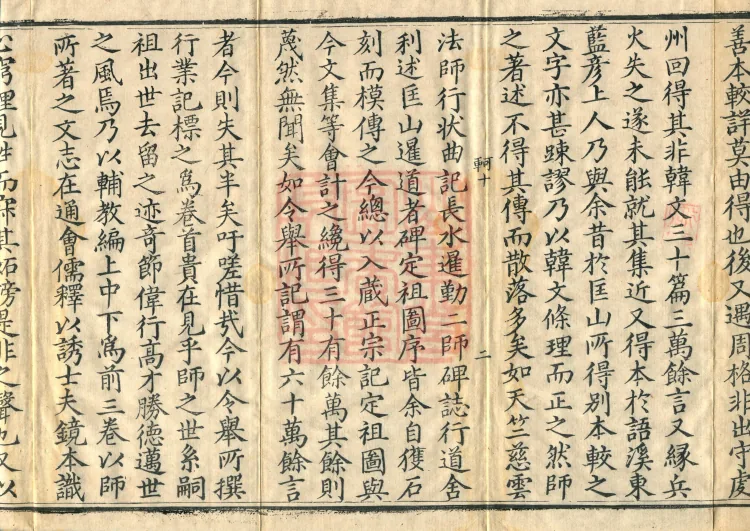 善本較詳莫由得也後又遇周格非出守處
州回得其非韓文三十篇三萬餘言又緣兵
火失之遂未能就其集近又得本於語溪東
藍彥上人乃與余昔於匡山所得別本較之
文字亦甚踈謬乃以韓文條理而正之然師
之著述不得其傳而散落多矣如天竺慈雲
軻十
二
法師行状曲記長水暹勤二師碑誌行道舍
利述匡山暹道者碑定祖圖序皆余自獲石
刻而模傳之今總以入藏正宗記定祖圖與
今文集等會計之纔得三十有餘萬其餘則
蔑然無聞矣如令舉所記謂有六十萬餘言
者今則失其半矣吁嗟惜㢤今以令舉所撰
行業記標之爲卷首貴在見乎師之世系嗣
祖出世去留之迹奇節偉行高才勝德邁世
之風焉乃以輔教編上中下爲前三卷以師
所著之文志在通會儒釋以誘士夫鏡本識
心窮理見性而
其
謗是非之聲也又以